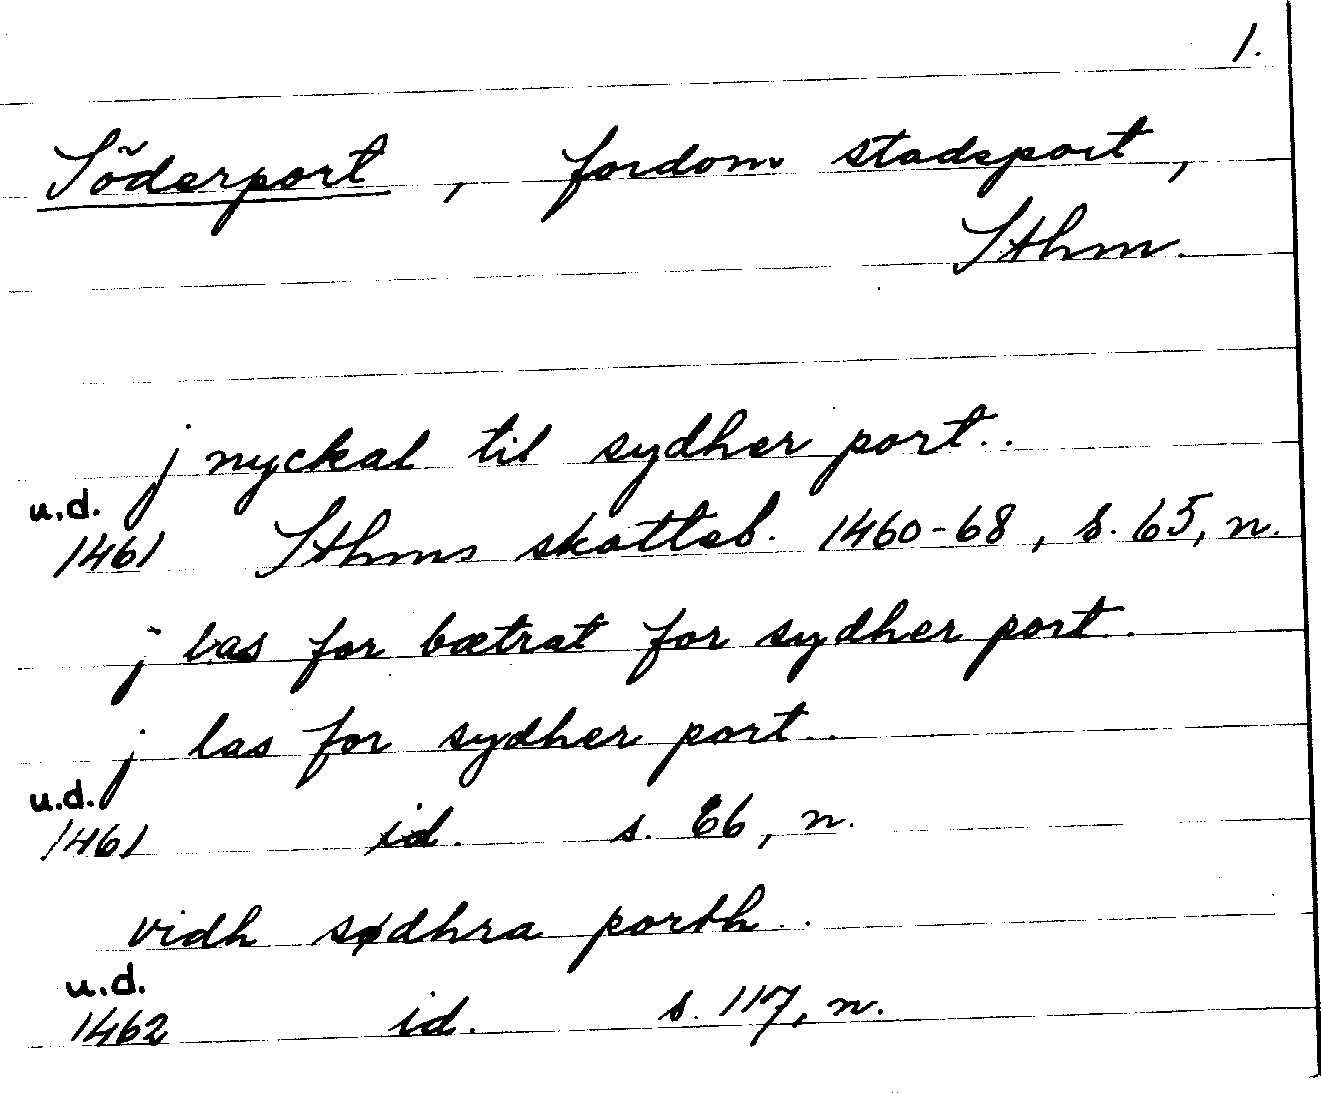 1.
Söderport, fordom stadsport,
Sthm.
j nyckal til sydher port..
u.d.
1461 Sthms skatteb. 1460-68, s. 65, n.
j las for bætrat for sydher port.
j las for sydher port..
u.d.
1461 id. s. 66, n.
vidh sødhra porth..
u.d.
1462 id. s. 117, n.